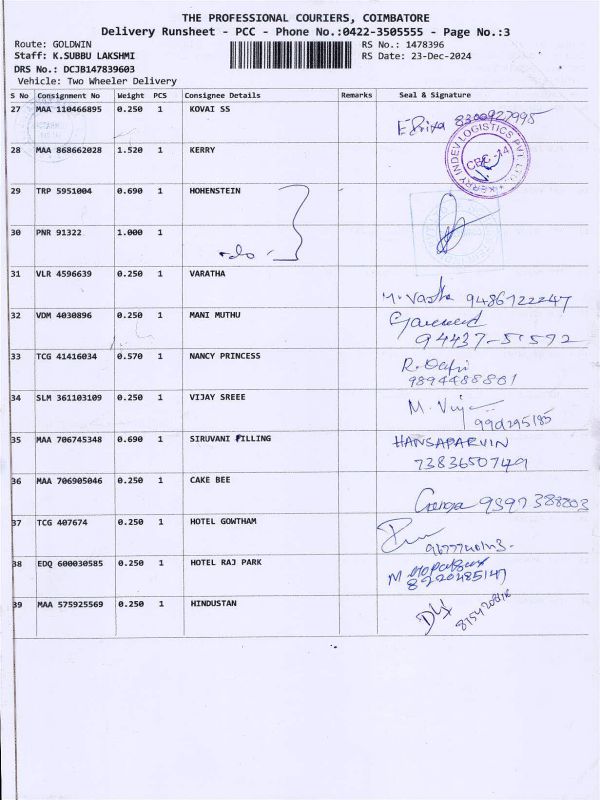 THE PROFESSIONAL COURIERS, COIMBATORE
Delivery Runsheet - PCC - Phone No.:0422-3505555 - Page No.:3
Route: GOLDWIN RS No.: 1478396
Staff: K.SUBBU LAKSHMI RS Date: 23-Dec-2024
DRS No.: DCJB147839603
Vehicle: Two Wheeler Delivery
S No Consignment No Weight PCS Consignee Details Remarks Seal & Signature
27 MAA 110466895 0.250 1 KOVAI SS
8300927995
28 MAA 868662028 1.520 1 KERRY
KERRY INDEV LOGISTICS PVT. LTD. CBE-14
29 TRP 5951004 0.690 1 HOHENSTEIN
30 PNR 91322 1.000 1
-do-
31 VLR 4596639 0.250 1 VARATHA
9486122247
32 VDM 4030896 0.250 1 MANI MUTHU
94437-51572
33 TCG 41416034 0.570 1 NANCY PRINCESS
9894488801
34 SLM 361103109 0.250 1 VIJAY SREEE
M. Vijay
35 MAA 706745348 0.690 1 SIRUVANI FILLING
HANSAPARVIN
7383650749
36 MAA 706905046 0.250 1 CAKE BEE
Ganga 9397388803
37 TCG 407674 0.250 1 HOTEL GOWTHAM
38 EDQ 600030585 0.250 1 HOTEL RAJ PARK
8220485147
39 MAA 575925569 0.250 1 HINDUSTAN